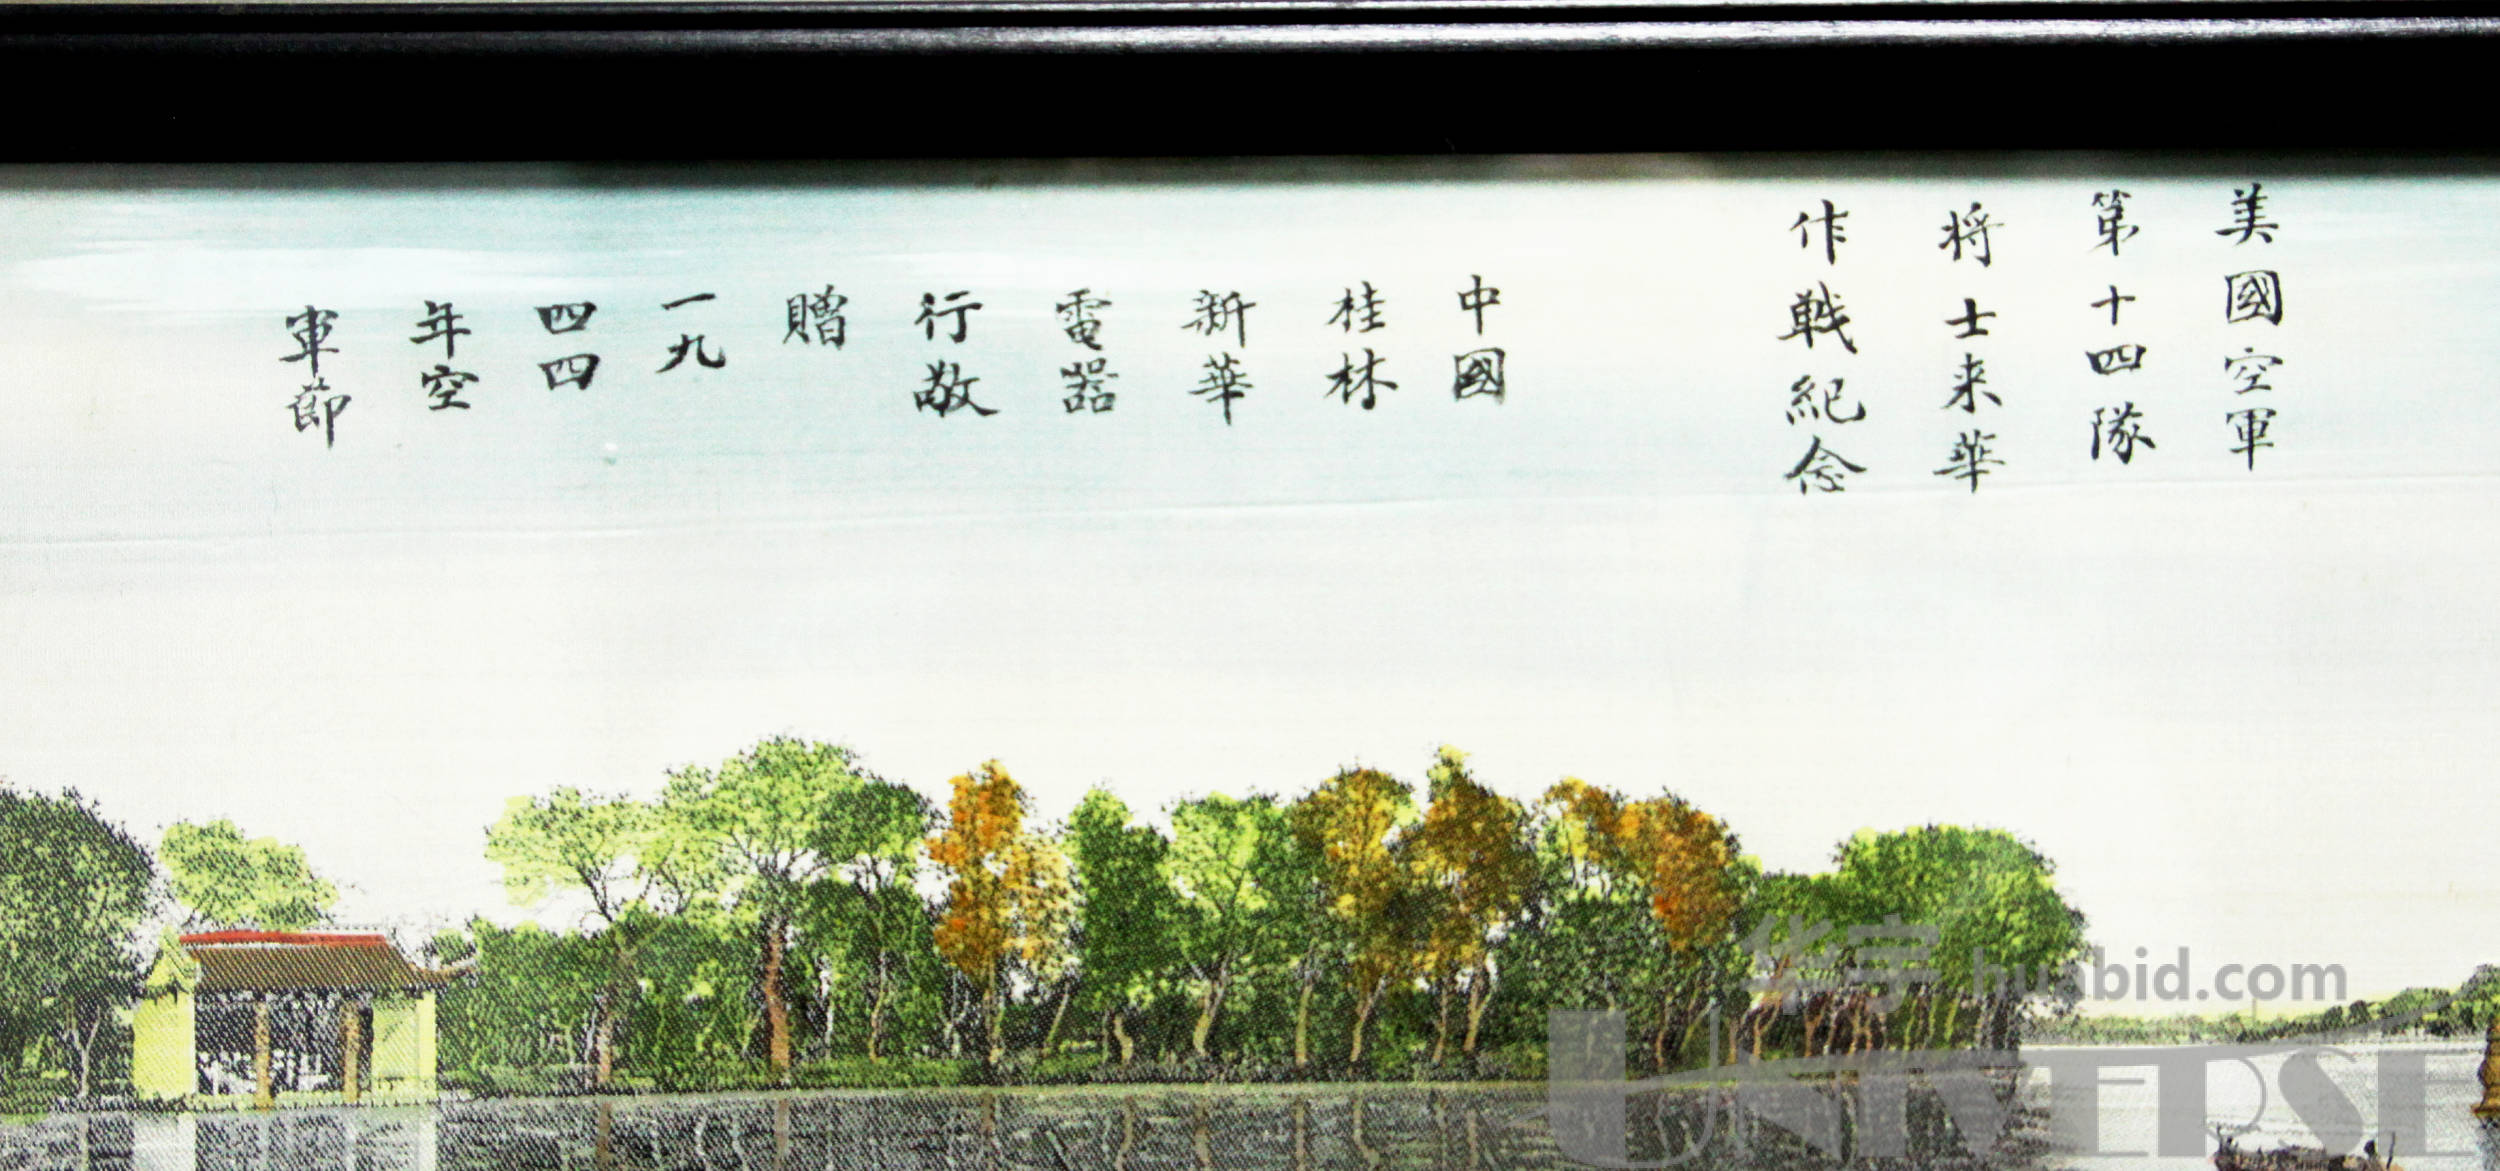 美國空軍
第十四隊
将士来華
作戰紀念
中國
桂林
新華
電器
行敬
贈
一九
四四
年空
軍節
华宇 huabid.com
UNIVERSE